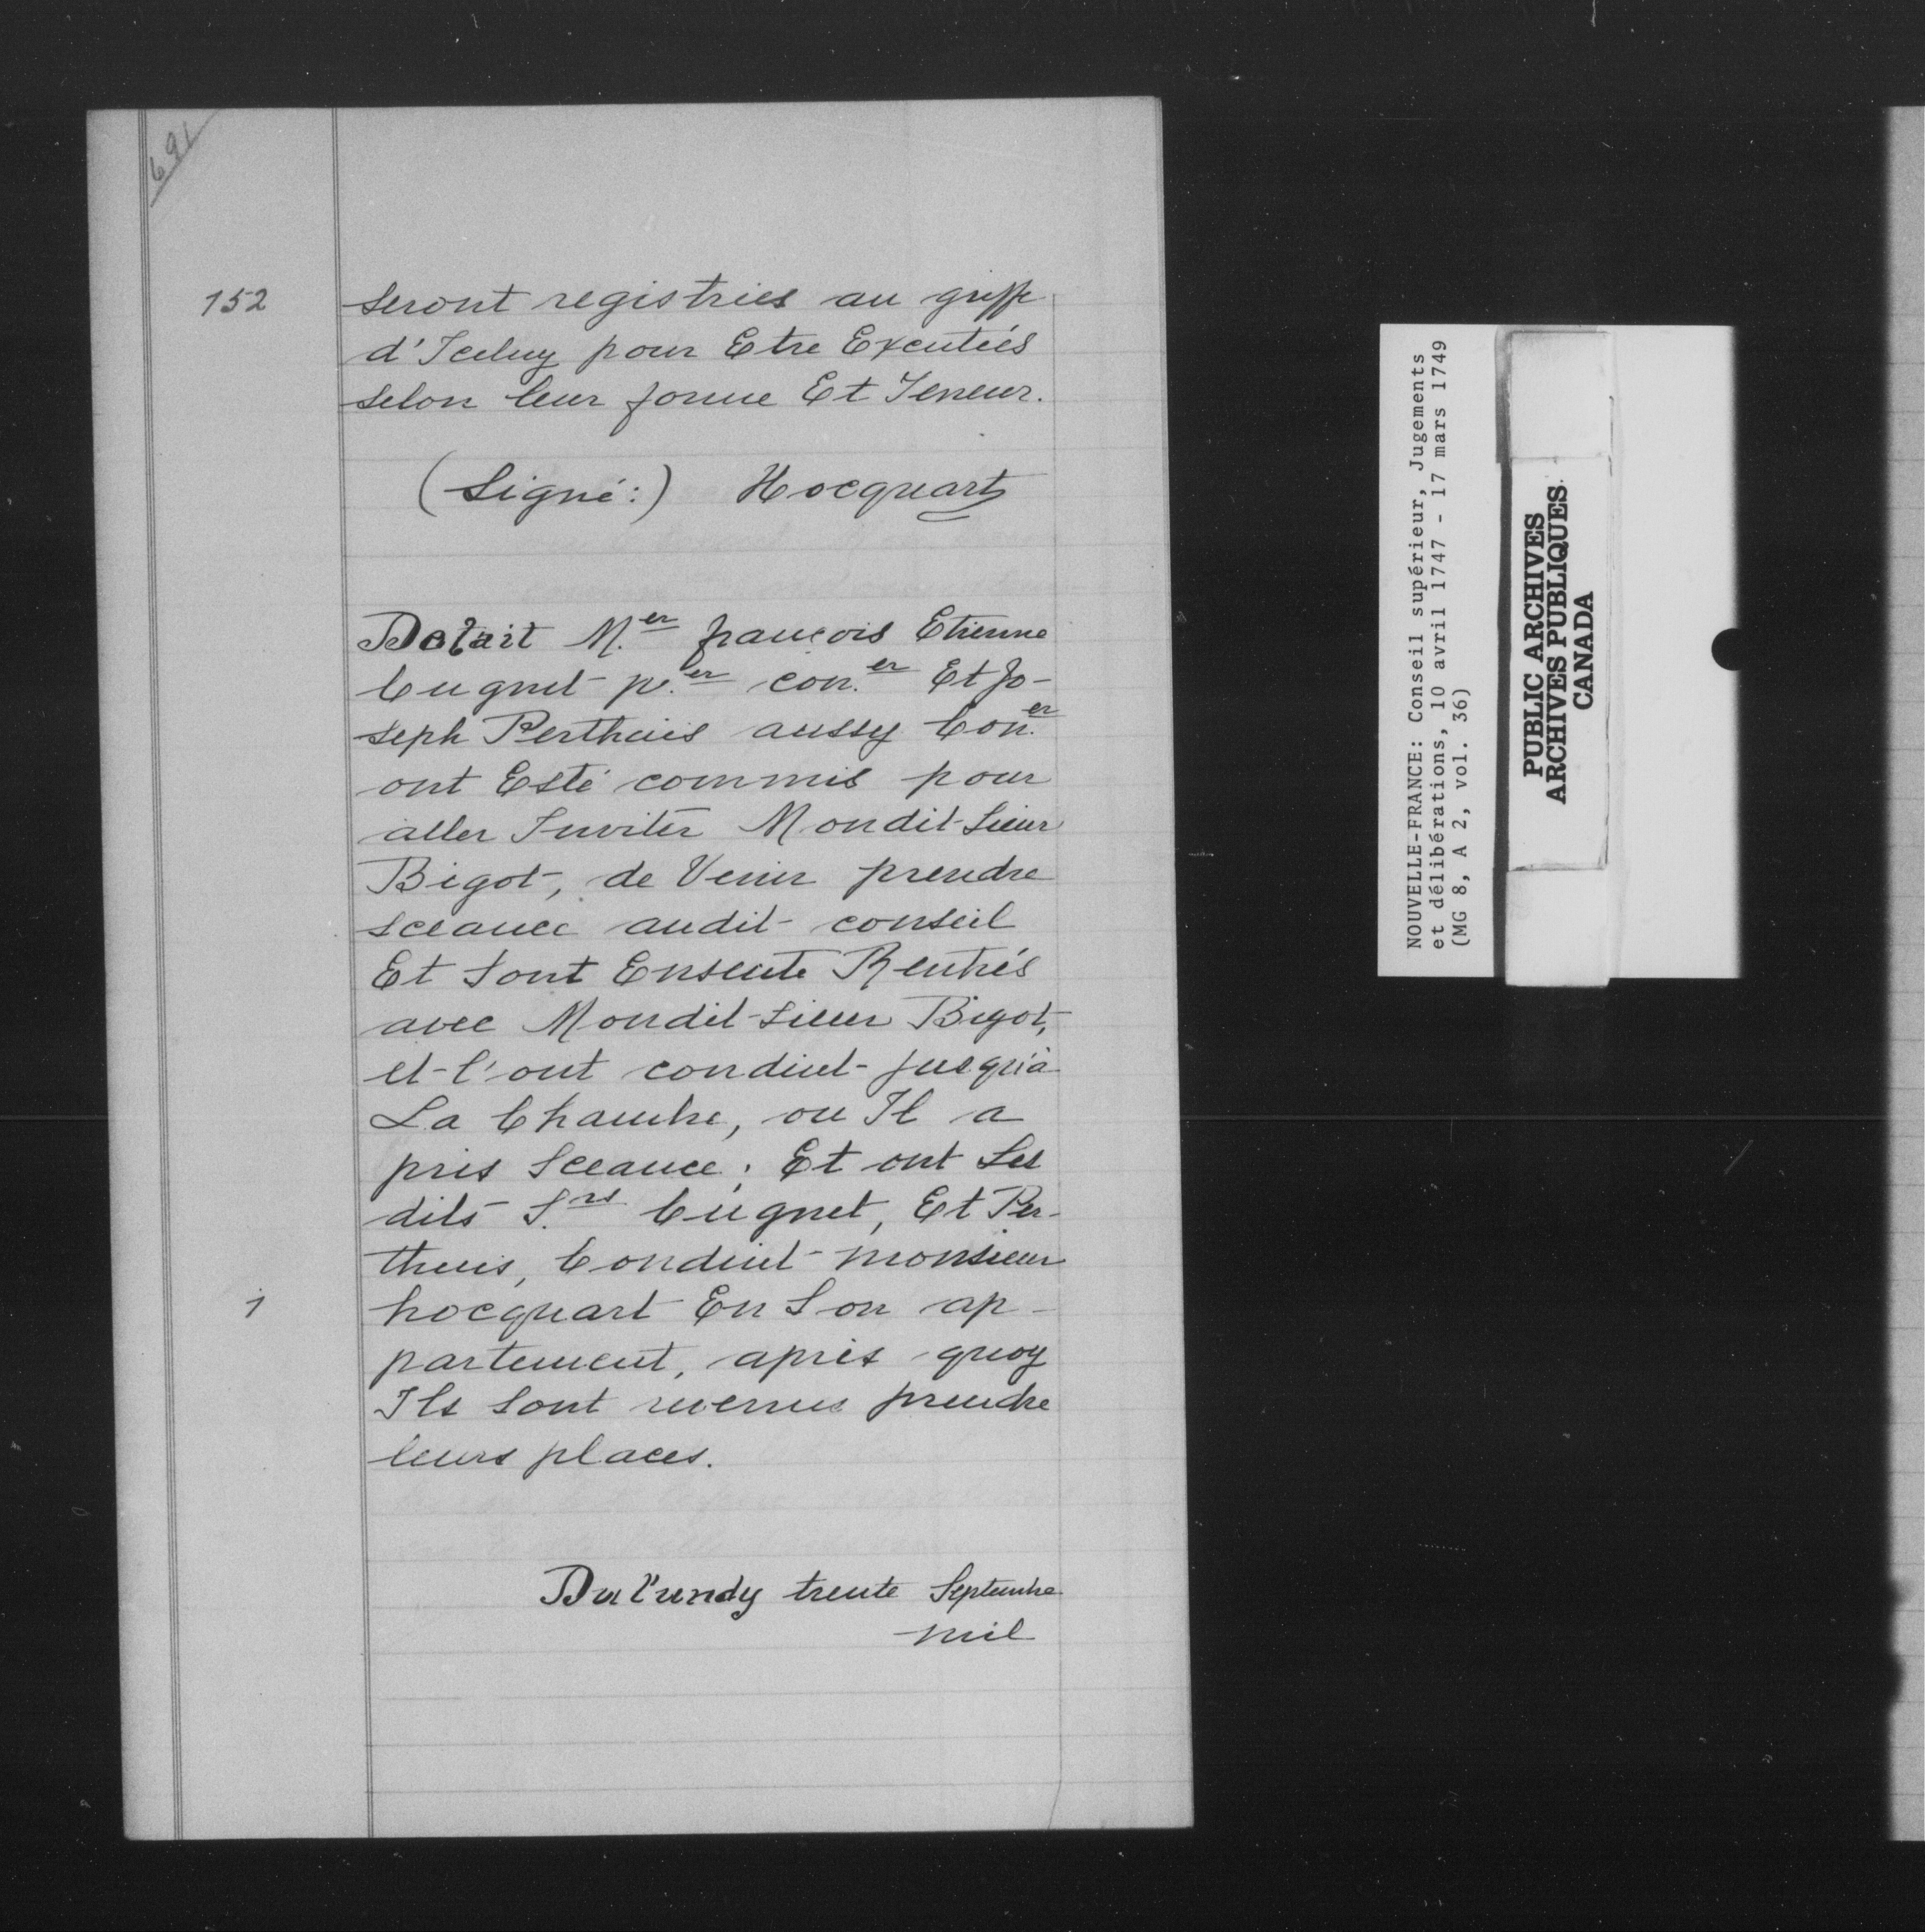 691
152
seront registrées au greffe
d'Iceluy pour Etre Executées
selon leur forme Et Teneur.
(Signé:) Hocquart
Defait M.er françois Etienne
Cugnet p.er con.er Et Jo-
seph Perthuis aussy Con.er
ont Esté commis pour
aller Inviter Mondit Sieur
Bigot, de Venir prendre
sceance audit conseil
Et sont Ensuite Rentrés
avec Mondit Sieur Bigot,
et l'ont conduit jusqu'à
La Chambre, ou Il a
pris Sceance; Et ont Les
dits S.rs Cugnet, Et Per-
thuis, Conduit monsieur
1
hocquart En Son ap-
partement, après quoy
Ils sont revenus prendre
leurs places.
Du lundy trente Septembre
mil
NOUVELLE-FRANCE: Conseil supérieur, Jugements
et délibérations, 10 avril 1747 - 17 mars 1749
(MG 8, A 2, vol. 36)
PUBLIC ARCHIVES
ARCHIVES PUBLIQUES
CANADA